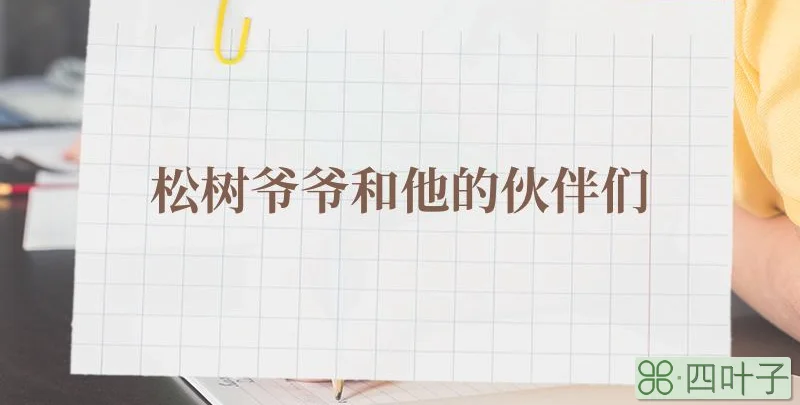 松树爷爷和他的伙伴们
⌘·四叶子